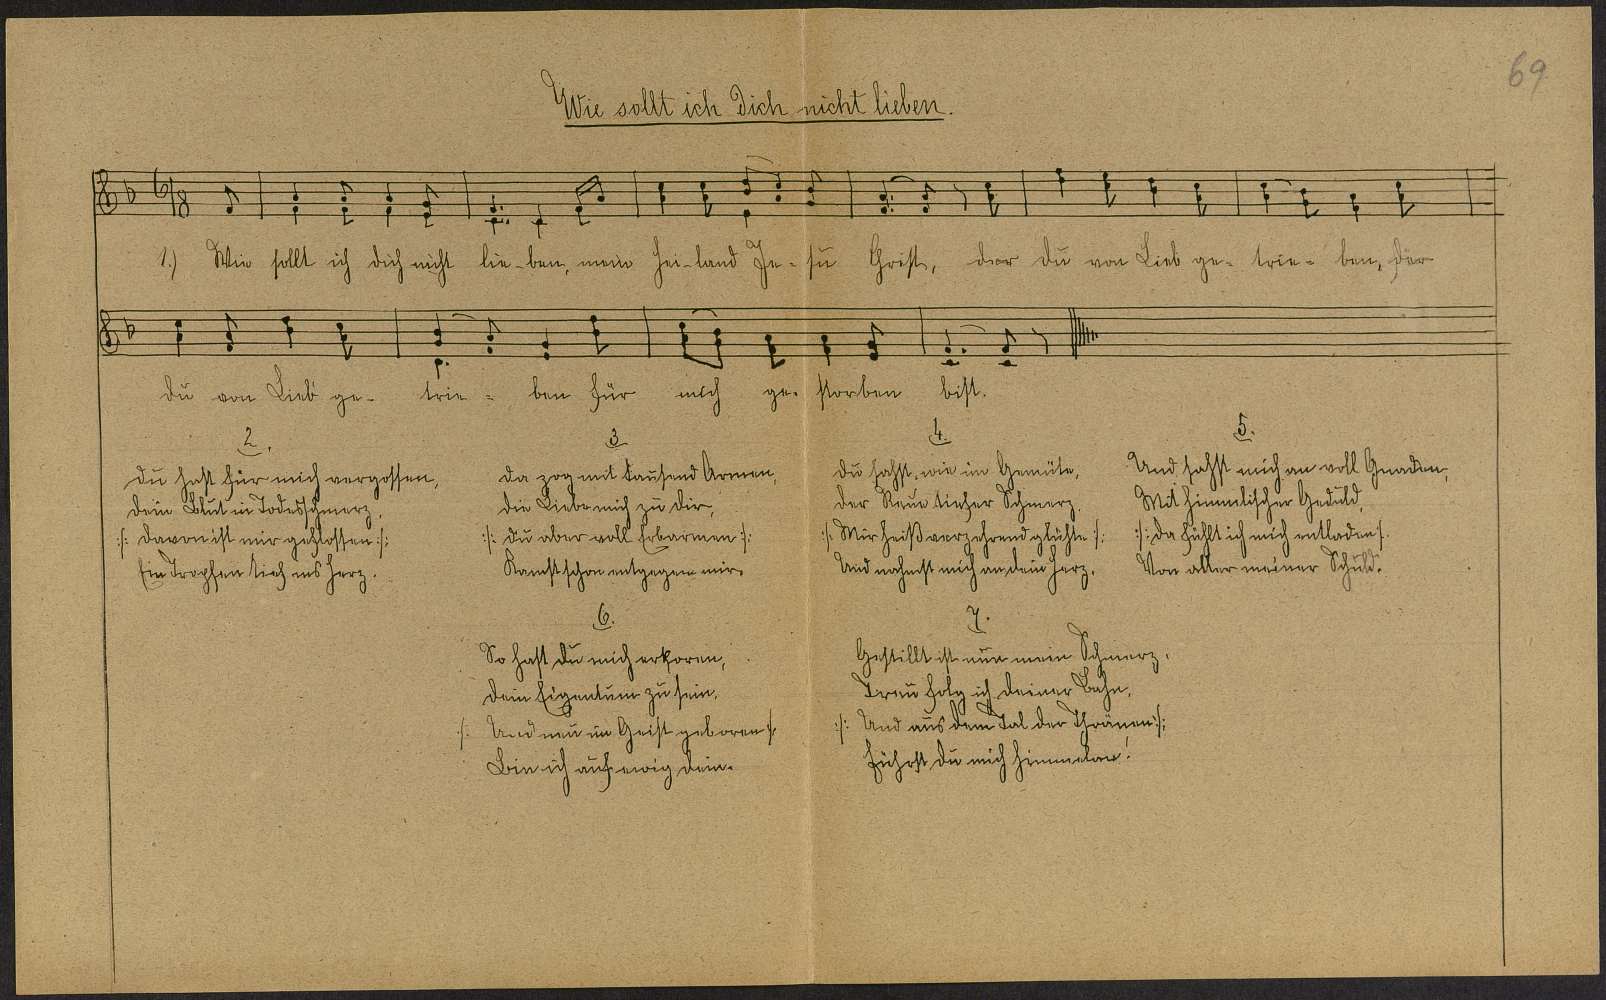 69
Wie sollt ich Dich nicht lieben.
6/8
1.) Wie sollt ich dich nicht lie-ben, mein Hei-land Je-su Christ, der du von Lieb ge-trie-ben, der
du von Lieb' ge-trie-ben für mich ge-storben bist.
2.
Du hast für mich vergossen,
Dein Blut in Todesschmerz,
:/: Davon ist mir geflossen :/:
Ein Tropfen tief ins Herz.
3
Da zog mit tausend Armen,
Die Liebe mich zu dir,
:/: Du aber voll Erbarmen :/:
Kamst schon entgegen mir.
4.
Du sahst, wie im Gemüte,
Der Reue tiefer Schmerz.
:/: Mir heiß verzehrend glühte :/:
Und nahmst mich an dein Herz.
5.
Und sahst mich an voll Gnaden,
Mit himmlischer Geduld,
:/: Da fühlt ich mich entladen :/:
Von aller meiner Schuld.
6.
So hast du mich erkoren,
Dein Eigentum zu sein.
:/: Und neu im Geist geboren :/:
Bin ich auf ewig dein.
7.
Gestillt ist nun mein Schmerz,
Treu folg ich deiner Bahn,
:/: Und aus dem Tal der Thränen :/:
Führst du mich himmelan!